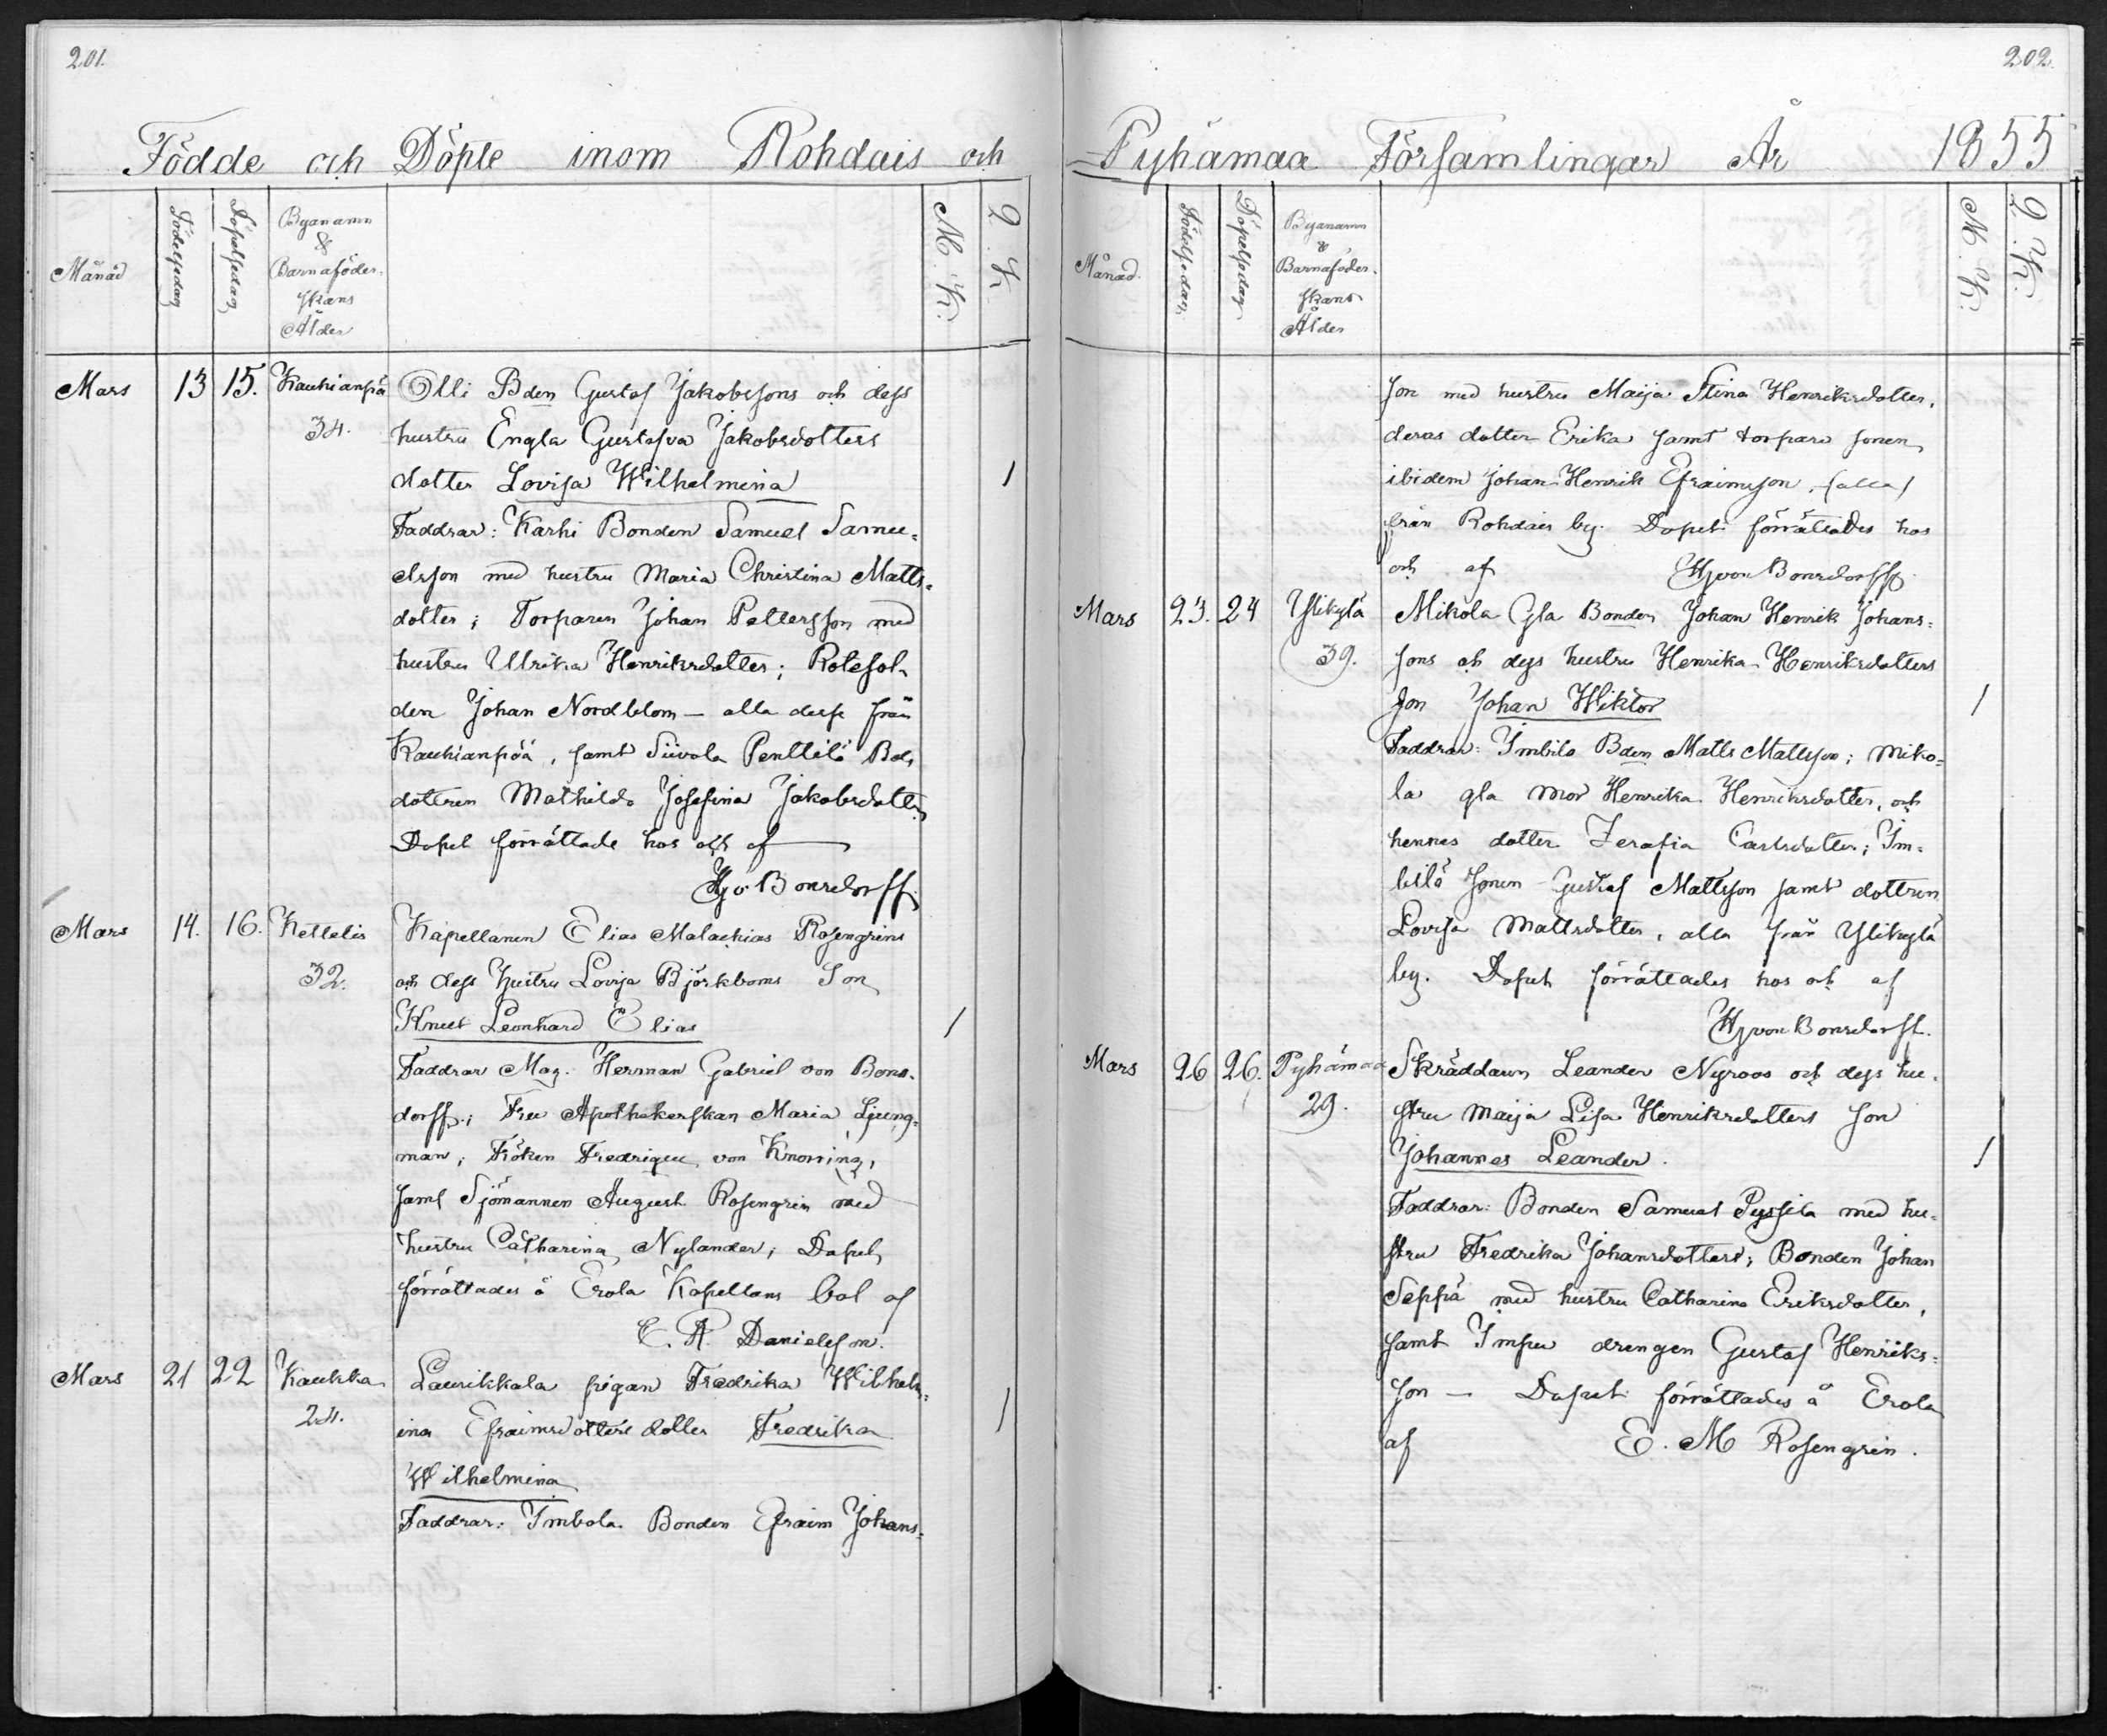 201.
Födde och Döpte inom Rohdais och
Månad
Födelsedag
Döpelsedag
Byanamn
&
Barnaföder-
skans
Ålder
M. K.
Q. K.
Mars 13 15. Kauhianpä Olli Bden Gustaf Jakobssons och dess
34. hustru Engla Gustafva Jakobsdotters
dotter Lovisa Wilhelmina 1
Faddrar: Karhi Bonden Samuel Samu-
elsson med hustru Maria Christina Matts-
dotter; Torparen Johan Pettersson med
hustru Ulrika Henriksdotter; Rotesol-
den Johan Nordblom — alla desse från
Kauhianpää, samt Siivola Penttilä Bds
dottren Mathilda Josefina Jakobsdotter
Dopet förrättade hos och af
Hj v. Bonsdorff.
Mars 14. 16. Kettelis Kapellanen Elias Malachias Rosengrens
32. och dess hustru Lovisa Björkboms Son
Knut Leonhard Elias 1
Faddrar Mag. Herman Gabriel von Bons-
dorff; Fru Apothekerskan Maria Ljung-
man, Fröken Fredrique von Knorring,
samt Sjömannen August Rosengren med
hustru Catharina Nylander; Dopet
förrättades å Erola Kapellans bol af
E. A. Danielsson.
Mars 21 22 Kaukka Laurikkala pigan Fredrika Wilhelm-
24. ina Efraimsdotters dotter Fredrika 1
Wilhelmina
Faddrar: Imbola Bonden Efraim Johans-
202.
Pyhämaa Församlingar År 1855
Månad.
Födelsedag
Döpelsedag
Byanamn
&
Barnaföder-
skans
Ålder
M. K.
Q. K.
son med hustru Maija Stina Henriksdotter,
deras dotter Erika samt torpare sonen
ibidem Johan Henrik Efraimsson, (alla)
från Rohdais by. Dopet förrättades hos
och af Hj von Bonsdorff
Mars 23. 24 Ylikylä Mikola Gla Bonden Johan Henrik Johans-
39. sons och dess hustru Henrika Henriksdotters
Son Johan Wiktor 1
Faddrar: Imbilä Bden Matts Mattsson; Miko-
la gla mor Henrika Henriksdotter, och
hennes dotter Serafia Carlsdotter; Im-
bilä Sonen Gustaf Mattsson samt dottren
Lovisa Mattsdotter, alla från Ylikylä
by. Dopet förrättades hos och af
Hj von Bonsdorff.
Mars 26 26. Pyhämaa Skräddarn Leander Nyroos och dess hu-
29. stru Maija Lisa Henriksdotters Son
Johannes Leander. 1
Faddrar: Bonden Samuel Pyssilä med hu-
stru Fredrika Johansdotters; Bonden Johan
Seppä med hustru Catharina Eriksdotter,
samt Impu drengen Gustaf Henriks-
son — Dopet förrättades å Erola
af E. M Rosengren.